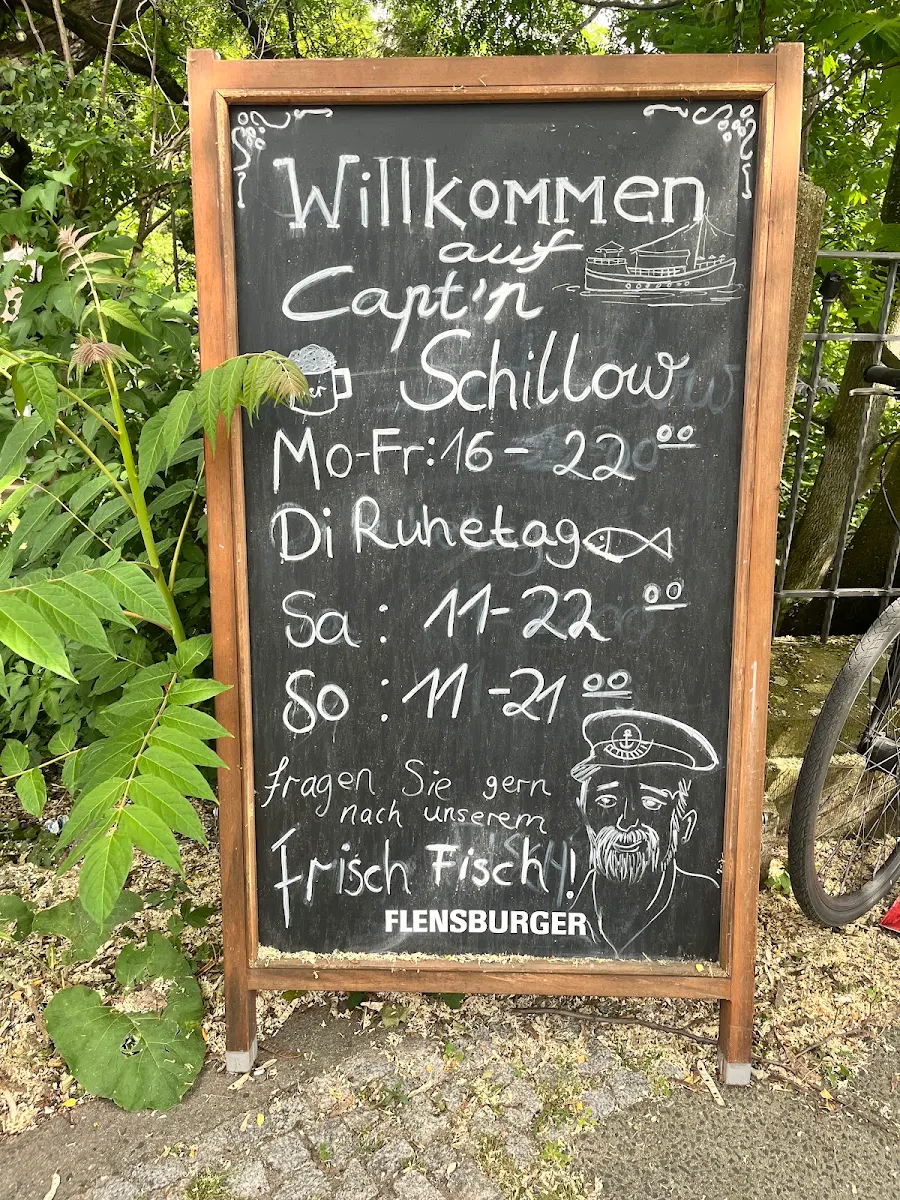 Willkommen
auf
Capt'n
Schillow
Mo-Fr: 16 - 22 00
Di Ruhetag
Sa : 11-22 00
So : 11-21 00
fragen Sie gern
nach unserem
frisch Fisch!
FLENSBURGER